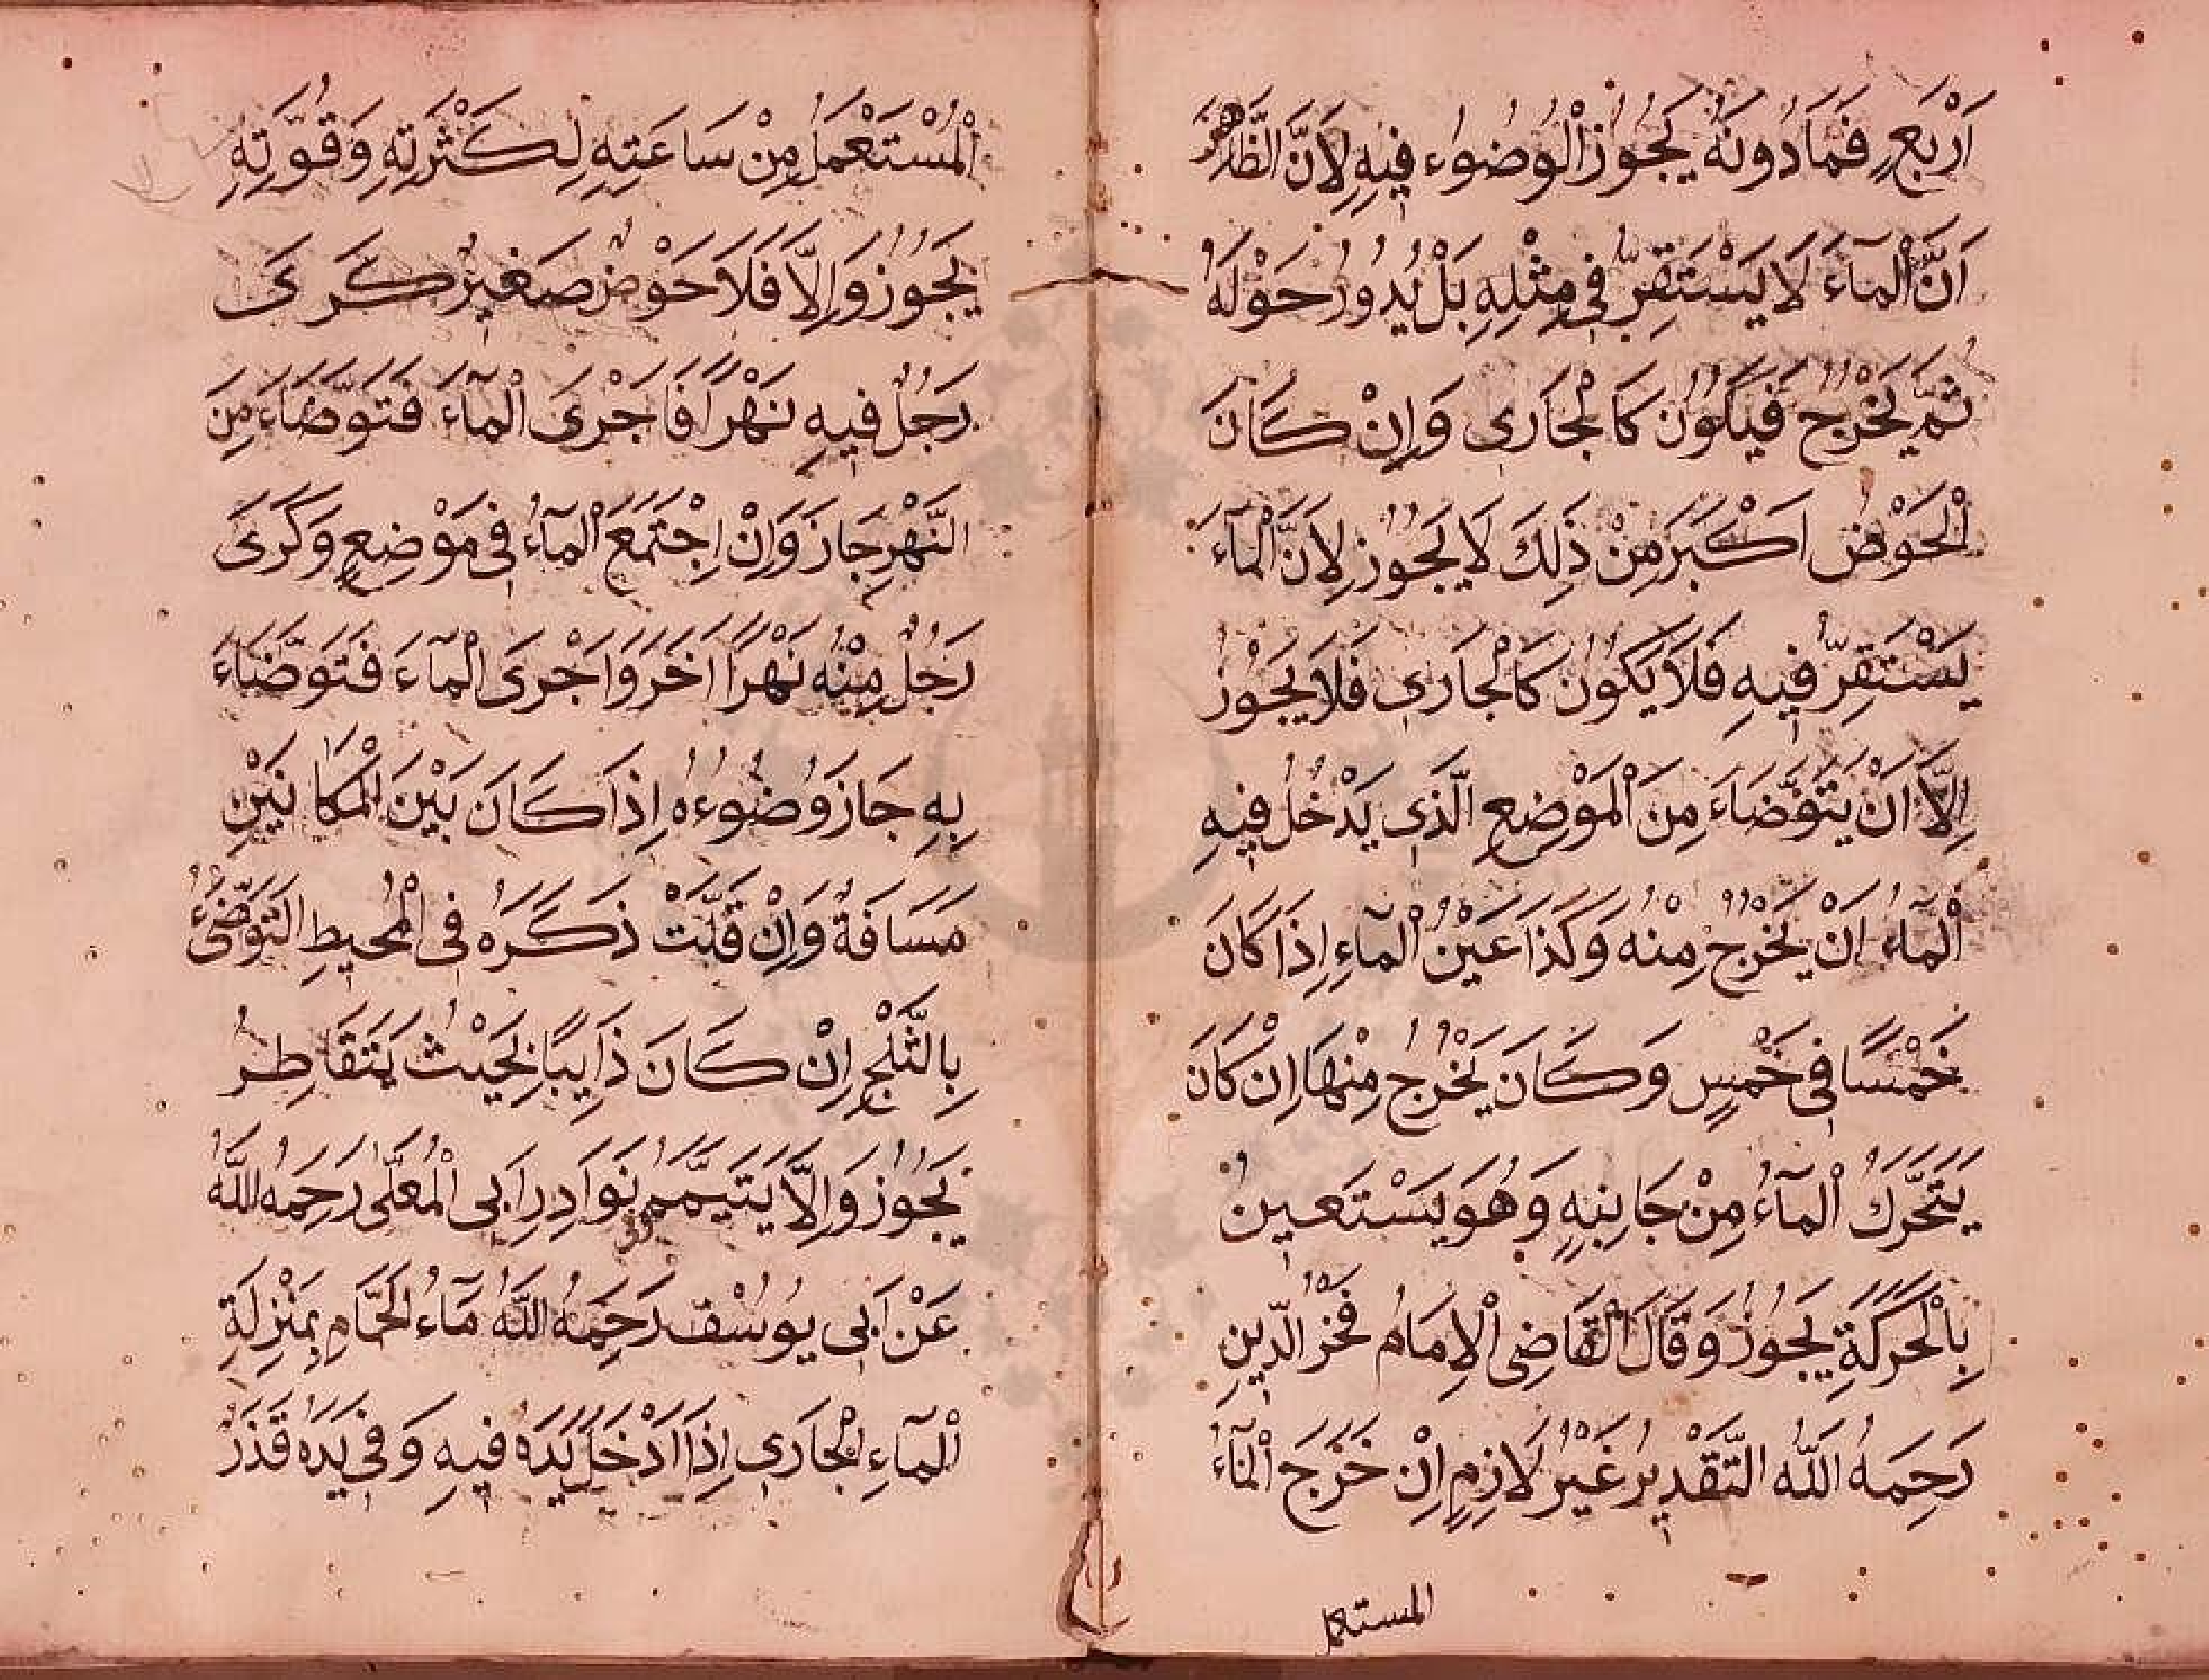 اَرْبَعٍ فَمَا دُونَهُ يَجُوزُ الْوُضُوء فِيهِ لِاَنَّ الظَّاهِرَ
اَنَّ الْمآءَ لَا يَسْتَقِرُّ فِي مِثْلِهِ بَلْ يُدُورُ حَوْلَهُ
ثُمَّ يَخْرُجُ فَيَكُونُ كَالْجَارِي وَاِنْ كَانَ
الْحَوْضُ اَكْبَرَ مِنْ ذَلِكَ لَا يَجُوزُ لِاَنَّ الْمآءَ
يَسْتَقِرُّ فِيهِ فَلَا يَكُونُ كَالْجَارِي فَلَا يَجُوزُ
اِلَّا اَنْ يَتَوَضَّاءَ مِنَ الْمَوْضِعِ الَّذِي يَدْخُلُ فِيهِ
الْمآءُ اَنْ يَخْرُجُ مِنْهُ وَكَذَا عَيْنُ الْمآءِ اِذَا كَانَ
خَمْسًا فِي خَمْسٍ وَكَانَ يَخْرُجُ مِنْهَا اِنْ كَانَ
يَتَحَرَّكُ الْمآءُ مِنْ جَانِبِهِ وَهُوَ يَسْتَعِينُ
بِالْحَرَكَةِ يَجُوزُ وَقَالَ الْقَاضِي الْاِمَامُ فَخْرُ الدِّينِ
رَحِمَهُ اللّهُ التَّقْدِيرُ غَيْرُ لَازِمٍ اِنْ خَرَجَ الْمآءُ
المستعمل
الْمُسْتَعْمَلُ مِنْ سَاعَتِهِ لِكَثْرَتِهِ وَقُوَّتِهِ
يَجُوزُ وَاِلَّا فَلَا حَوْضٌ صَغِيرٌ كَرَى
رَجُلٌ فِيهِ نَهْرًا فَاَجْرَى الْمآءَ فَتَوَضَّاءَ مِنَ
النَّهْرِ جَازَ وَاِنْ اِجْتَمَعَ الْمآءُ فِي مَوْضِعٍ وَكَرَى
رَجُلٌ مِنْهُ نَهْرًا اَخَرَ وَاَجْرَى الْمآءَ فَتَوَضَّاءَ
بِهِ جَازَ وُضُوءُهُ اِذَا كَانَ بَيْنَ الْمَكَانَيْنِ
مَسَافَةٌ وَاِنْ قَلَّتْ ذَكَرَهُ فِي الْمُحِيطِ التَّوَضِّىُ
بِالثَّلْجِ اِنْ كَانَ ذَايِبًا بِحَيْثُ يَتَقَاطِرُ
يَجُوزُ وَاِلَّا يَتَيَمَّمُ نَوَادِرِ اَبِى الْمُعَلَّى رَحِمَهُ اللّهُ
عَنْ اَبِى يُوسُفْ رَحِمَهُ اللّهُ مَاءُ الْحَمَّامِ بِمَنْزِلَةِ
الْمآءِ الْجَارِي اِذَا اَدْخَلَ يَدَهُ فِيهِ وَفِي يَدِهِ قَذَرٌ